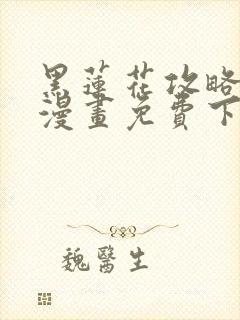 黑蓮花攻略
漫畫免費下
魏醫生